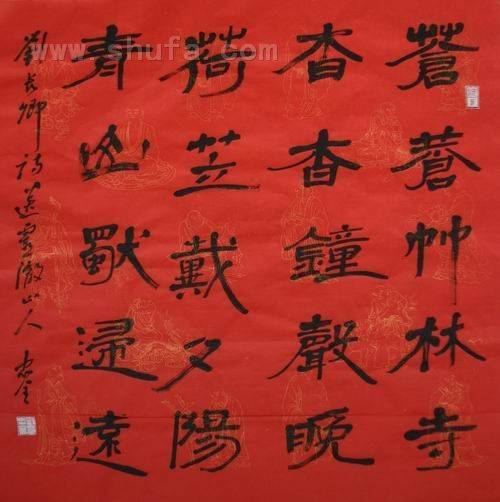 www.shufa.com
蒼蒼竹林寺
杳杳鐘聲晚
荷苙戴夕陽
青山獨歸遠
劉长卿詩送靈澈山人